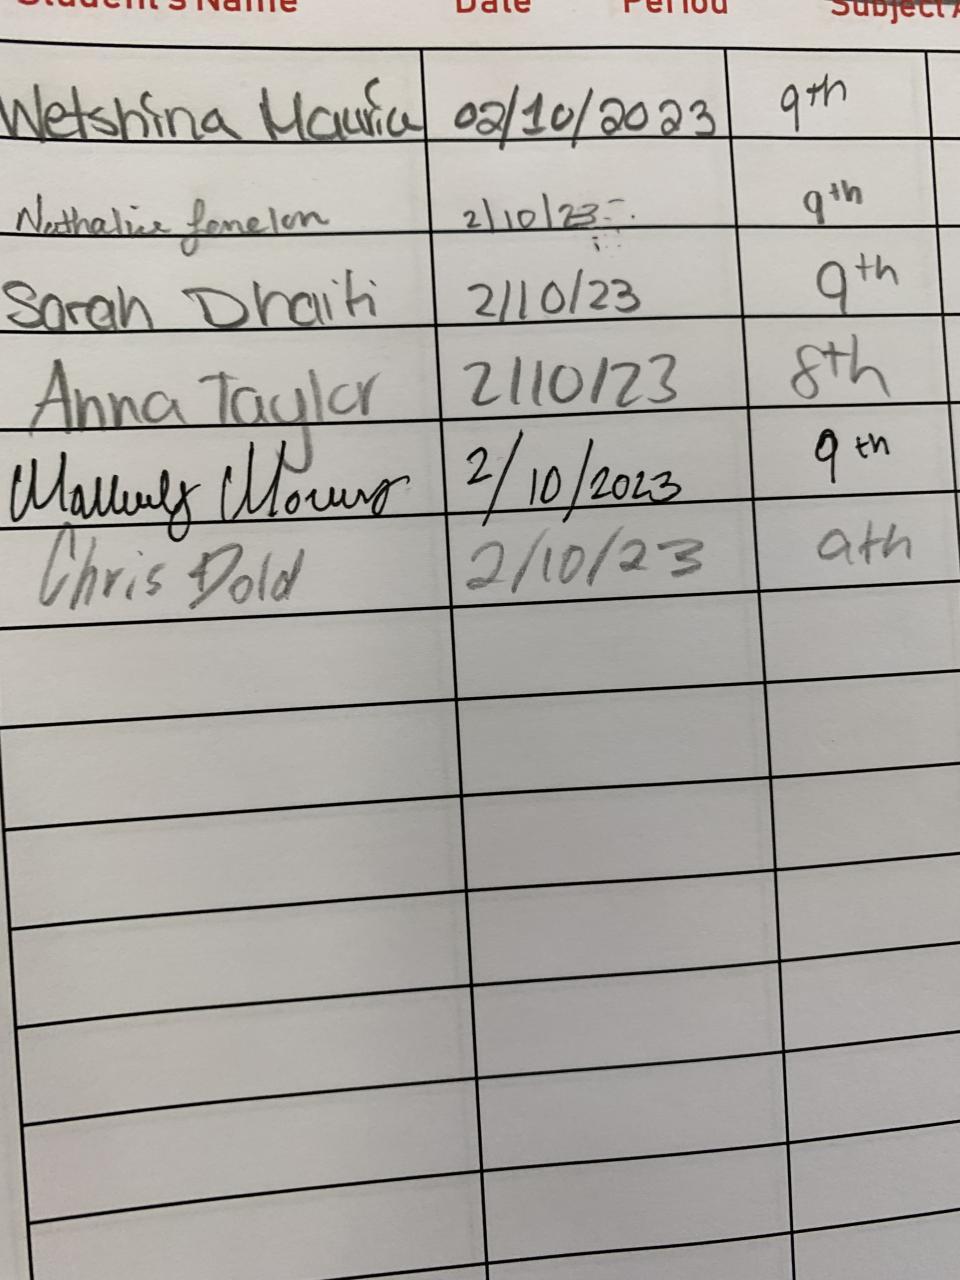 Student's Name Date Period Subject A
Wetshina Mauria 02/10/2023 9th
Nathalie fenelon 2/10/23 9th
Sarah Dhaiti 2/10/23 9th
Anna Taylor 2/10/23 8th
2/10/2023 9th
Chris Dold 2/10/23 9th